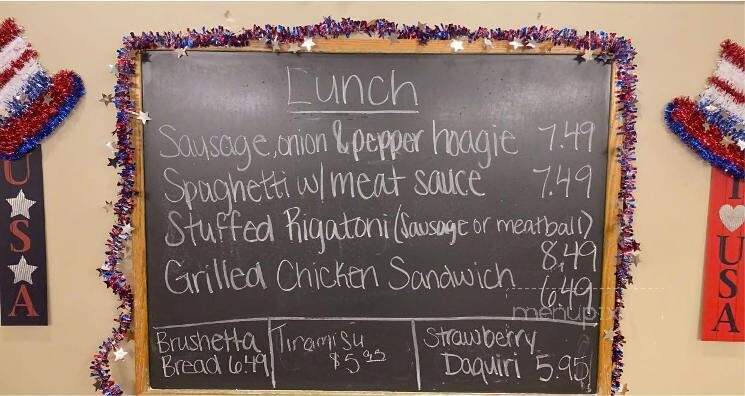 Lunch
Sausage, onion & pepper hoagie 7.49
Spaghetti w/ meat sauce 7.49
Stuffed Rigatoni (Sausage or meatball)
8.49
Grilled Chicken Sandwich 6.49
Brushetta
Bread 6.49
Tiramisu
$5.95
Strawberry
Daquiri 5.95
USA
I USA
menupix